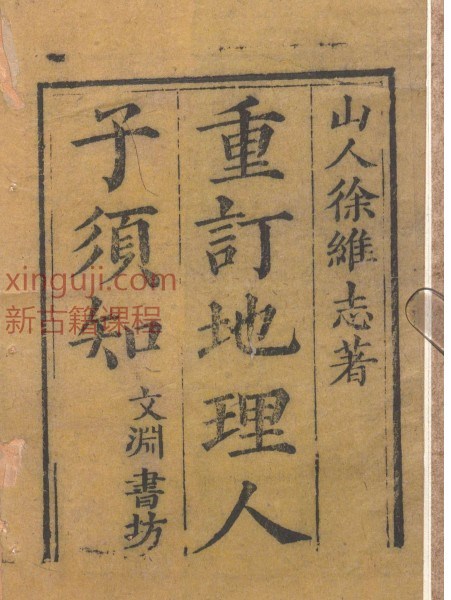 山人徐維志著
重訂地理人
子須知
文淵書坊
xinguji.com
新古籍课程